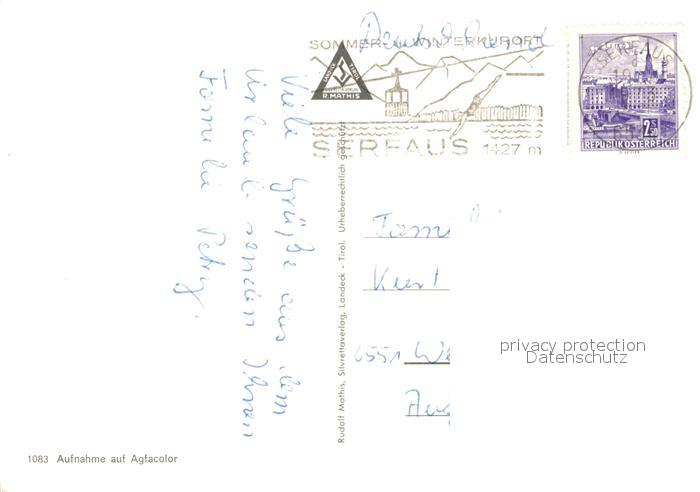 Deutschland
SOMMER- u. WINTERKURORT
SERFAUS 1427 m
R. MATHIS
SERFAUS
2.50
REPUBLIK ÖSTERREICH
Viele Grüße aus dem
Urlaub senden Ihnen
Familie Petry.
Rudolf Mathis, Silvrettaverlag, Landeck - Tirol. Urheberrechtlich geschützt
Fami
6551
privacy protection
Datenschutz
1083 Aufnahme auf Agfacolor